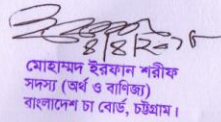 ৪/৪/২০১৮
মোহাম্মদ ইরফান শরীফ
সদস্য (অর্থ ও বাণিজ্য)
বাংলাদেশ চা বোর্ড, চট্টগ্রাম।